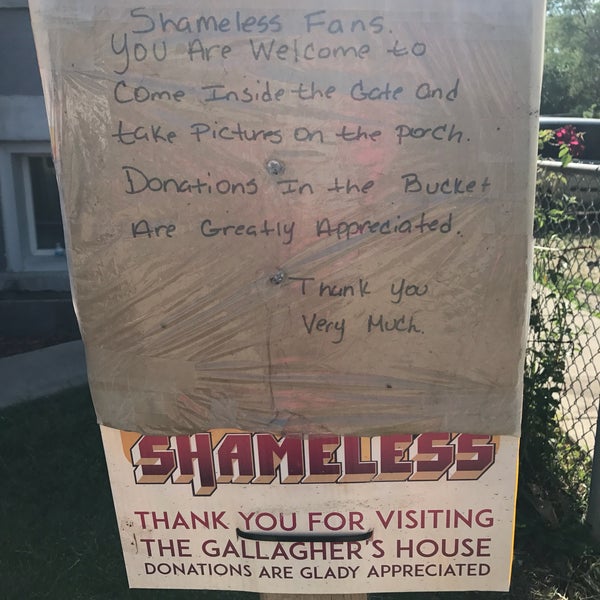 Shameless Fans.
You Are Welcome to
Come Inside the Gate and
take Pictures on the porch.
Donations In the Bucket
Are Greatly Appreciated.
Thank you
Very Much.
SHAMELESS
THANK YOU FOR VISITING
THE GALLAGHER'S HOUSE
DONATIONS ARE GLADY APPRECIATED